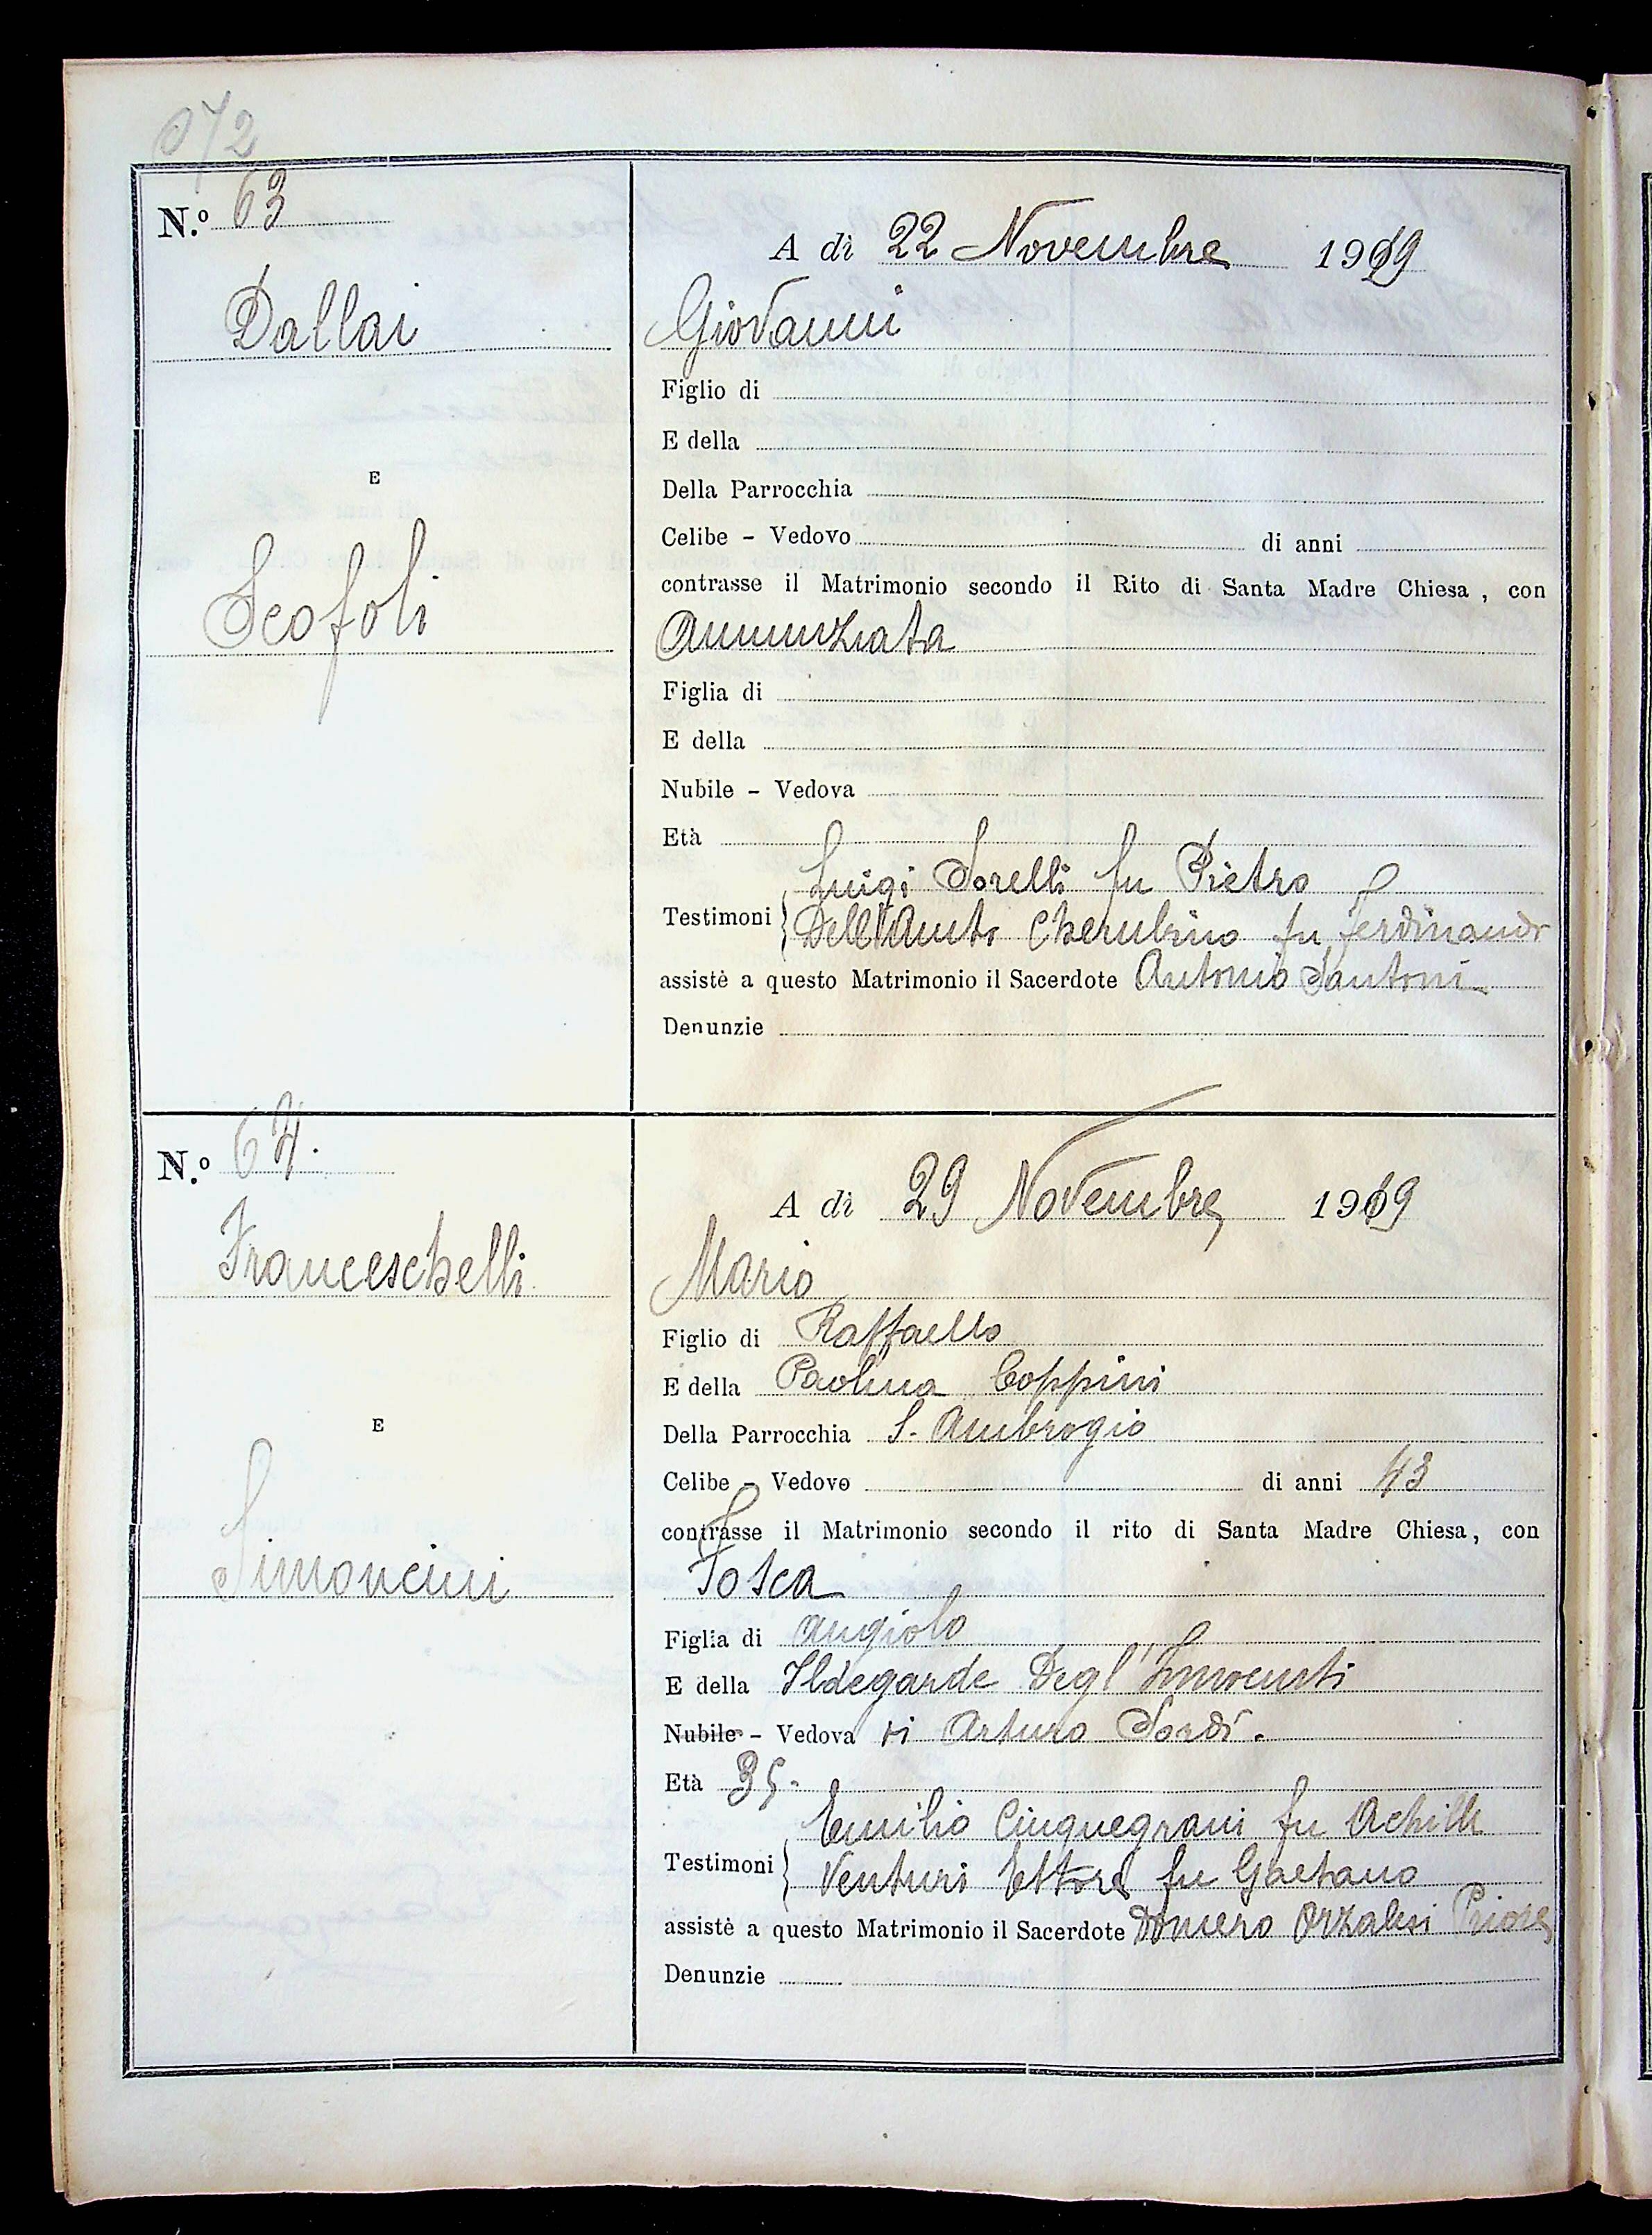 072
N.º 63
Dallai
E
Scofoli
A dì 22 Novembre 1919
Giovanni
Figlio di
E della
Della Parrocchia
Celibe - Vedovo di anni
contrasse il Matrimonio secondo il Rito di Santa Madre Chiesa, con
Annunziata
Figlia di
E della
Nubile - Vedova
Età
Luigi Sorelli fu Pietro
Testimoni
Dell'Amito Cherubino fu Ferdinando
assistè a questo Matrimonio il Sacerdote Antonio Santoni
Denunzie
N.º 64.
Franceschelli
E
Simoncini
A dì 29 Novembre 1919
Mario
Figlio di Raffaello
E della Paolina Coppini
Della Parrocchia S. Ambrogio
Celibe - Vedovo di anni 43
contrasse il Matrimonio secondo il rito di Santa Madre Chiesa, con
Tosca
Figlia di Angiolo
E della Ildegarde Degl'Innocenti
Nubile - Vedova di Arturo Sordi.
Età 35.
Emilio Cinquegrani fu Achille
Testimoni
Venturi Ettore fu Gaetano
assistè a questo Matrimonio il Sacerdote Omero Orzalesi Priore
Denunzie